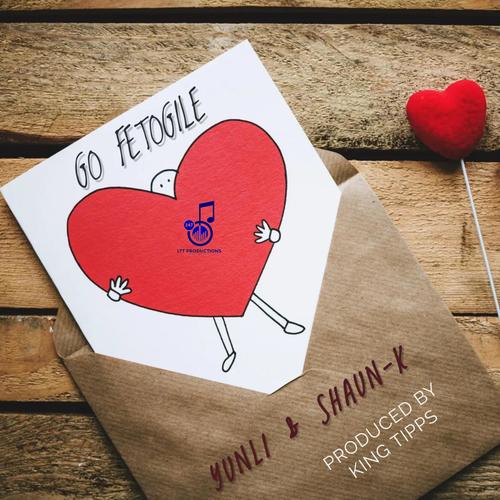 GO FETOGILE
247
LTT PRODUCTIONS
YUNLI & SHAUN-K
PRODUCED BY
KING TIPPS